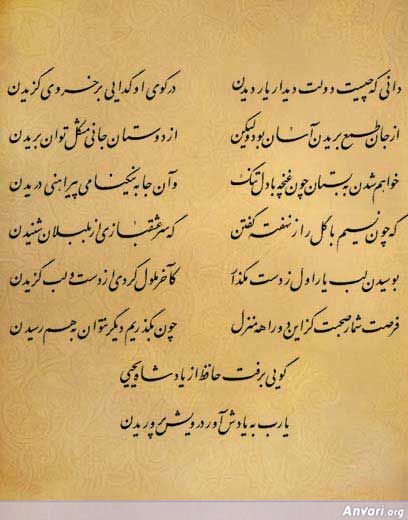 دانی که چیست دولت دیدار یار دیدن در کوی او گدایی بر خسروی گزیدن
از جان طمع بریدن آسان بود ولیکن از دوستان جانی مشکل توان بریدن
خواهم شدن به بستان چون غنچه با دل تنگ وآن جا به نیکنامی پیراهنی دریدن
گه چون نسیم با گل راز نهفته گفتن گه سر عشقبازی از بلبلان شنیدن
بوسیدن لب یار اول ز دست مگذار کآخر ملول گردی از دست و لب گزیدن
فرصت شمار صحبت کز این دوراهه منزل چون بگذریم دیگر نتوان به هم رسیدن
گویی برفت حافظ از یاد شاه یحیی
یارب به یادش آور درویش پروریدن
Anvari.org